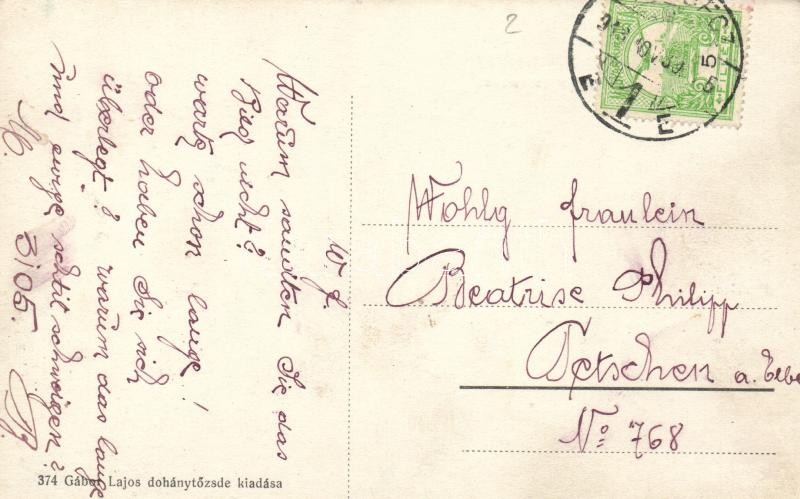 2
5
FILLÉR
W. f.
Warum sandten Sie das
Bild nicht?
warte schon lange!
oder haben Sie sich
überlegt? warum das lange
und ewige schtil schweigen?
M. 3/05.
Wohlg fraulein
Beatrise Philipp
Tetschen a. Elbe
No 768
374 Gábor Lajos dohánytőzsde kiadása